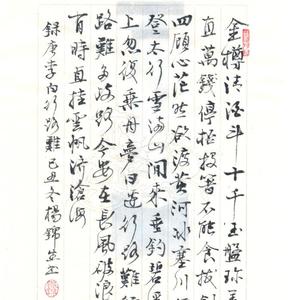 金樽清酒斗十千玉盤珍
直萬錢停杯投箸不能食拔
四顧心茫然欲渡黃河冰塞川
登太行雪滿山閒來垂釣碧
上忽復乘舟夢日邊行路難
路難多岐路今安在長風破浪
有時直掛雲帆濟滄海
錄唐李白行路難己丑冬楊錦書